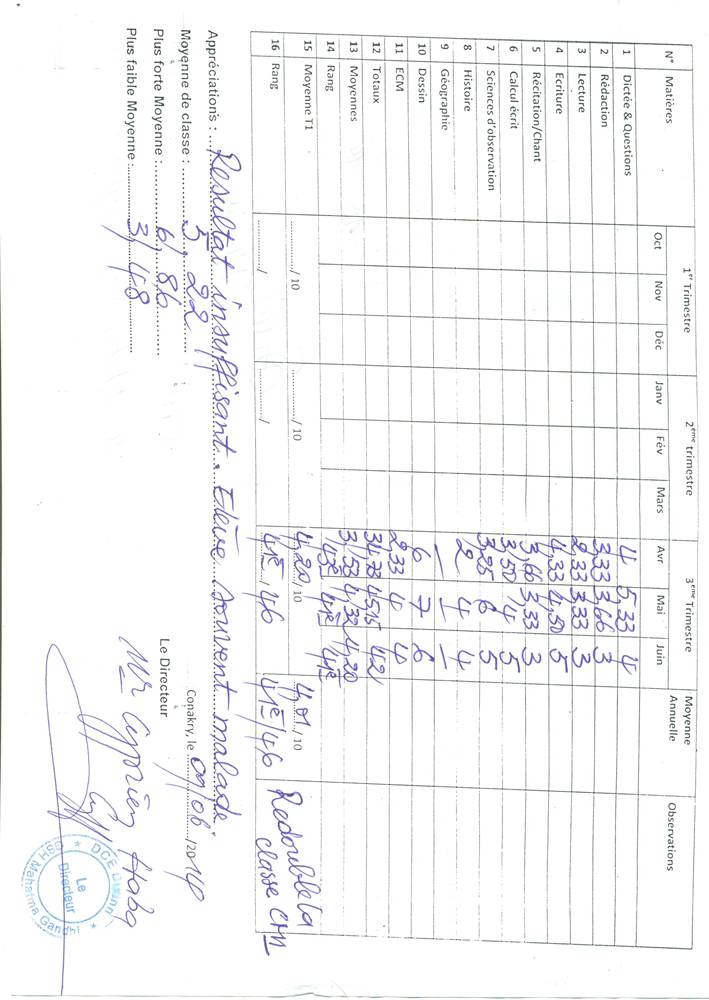 N° Matières 1er Trimestre 2ème trimestre 3ème Trimestre Moyenne Annuelle Observations
Oct Nov Déc Janv Fév Mars Avr Mai Juin
1 Dictée & Questions 4 5,33 4
2 Rédaction 3,33 3,66 3
3 Lecture 2,33 3,33 3
4 Ecriture 4,33 4,50 5
5 Récitation/Chant 3,66 3,33 3
6 Calcul écrit 3,50 4 5
7 Sciences d'observation 3,25 6 5
8 Histoire 2 4 4
9 Géographie – – –
10 Dessin 6 7 6
11 ECM 2,33 4 4
12 Totaux 34,33 45,15 42
13 Moyennes 3,53 4,32 4,20
14 Rang 43è 41è 41è
15 Moyenne T1 ........../ 10 ........../ 10 4,20 / 10 4,01 / 10 Redouble la
16 Rang ........../ ........../ 41è / 46 41è / 46 classe CM1
Appréciations : Resultat insuffisant. Elève souvent malade.
Moyenne de classe : 5,22
Plus forte Moyenne : 6,86
Plus faible Moyenne : 3,48
Conakry, le /06/2014
Le Directeur
Mr Cyprien Haba
DCE Dixinn
Le
Directeur
HSG Mahatma Gandhi